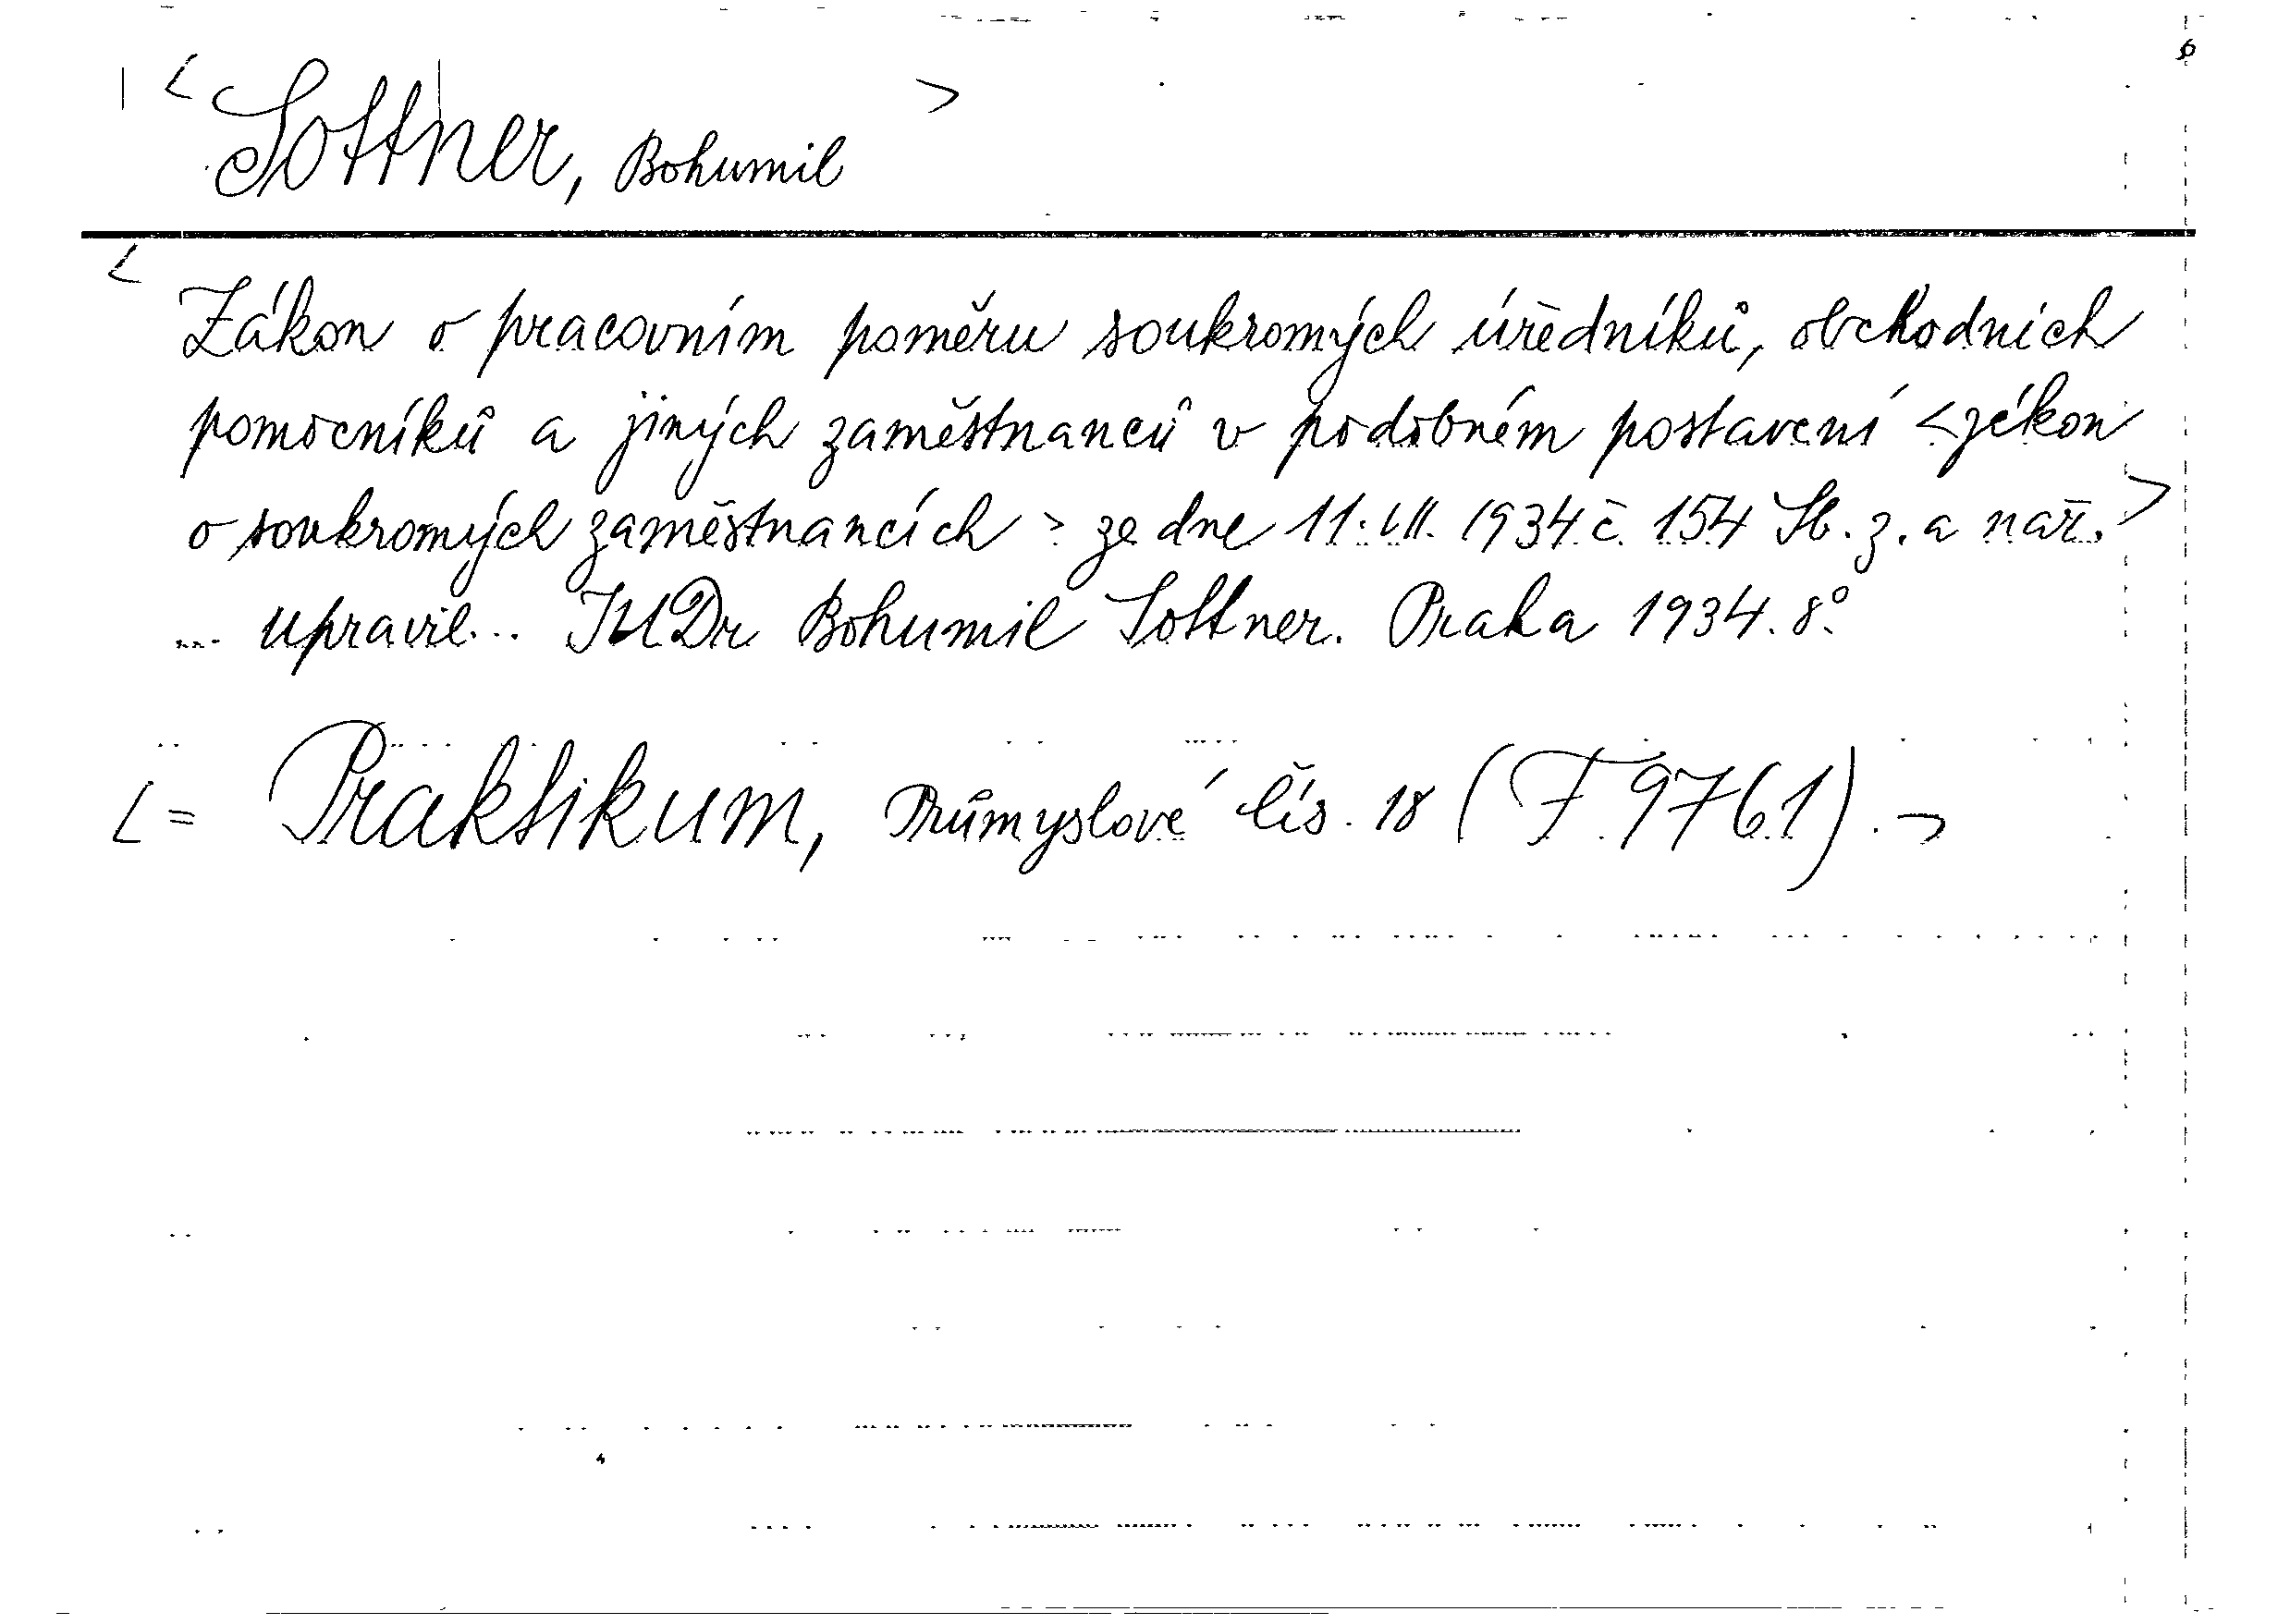 < Sottner, Bohumil >
< Zákon o pracovním poměru soukromých úředníků, obchodních
pomocníků a jiných zaměstnanců v podobném postavení <zákon
o soukromých zaměstnancích > ze dne 11. VII. 1934 č. 154 Sb. z. a nař. >
... upravil... JUDr Bohumil Sottner. Praha 1934. 8°.
[= Praktikum, Průmyslové čís. 18 (F 9761). ¬